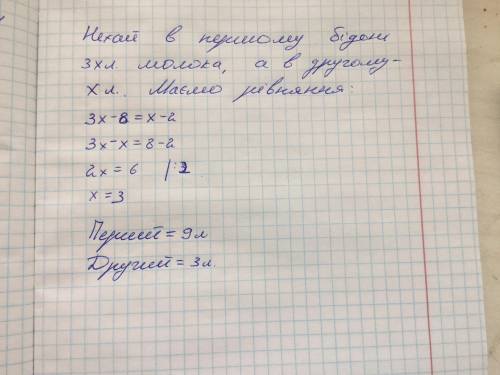 Нехай в першому бідоні
3х л. молока, а в другому-
х л. Маємо рівняння:
3х-8=х-2
3х-х=8-2
2х=6 |:2
х=3
Перший=9л
Другий=3л.